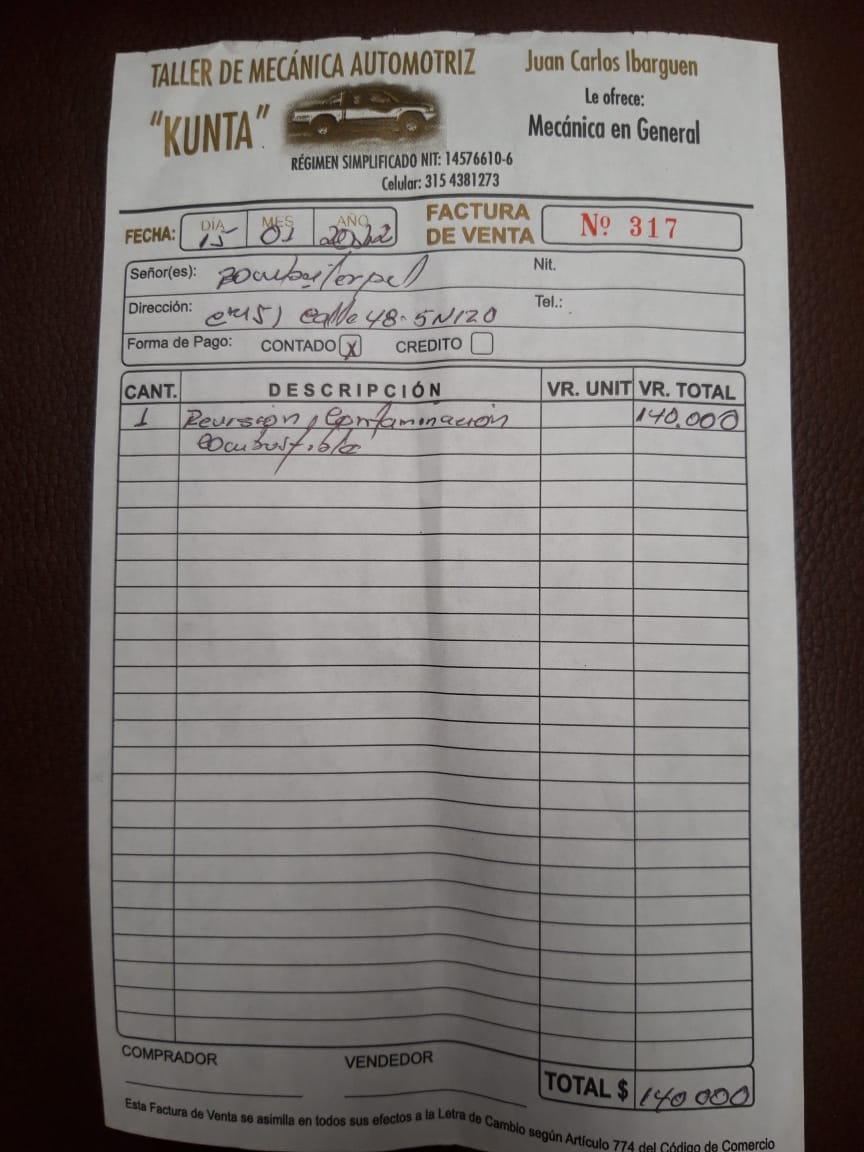 TALLER DE MECÁNICA AUTOMOTRIZ
"KUNTA"
Juan Carlos Ibarguen
Le ofrece:
Mecánica en General
RÉGIMEN SIMPLIFICADO NIT: 14576610-6
Celular: 315 4381273
FECHA: DÍA MES AÑO
15 01
FACTURA DE VENTA
Nº 317
Señor(es):
Nit.
Dirección: calle 48-5N120
Tel.:
Forma de Pago: CONTADO X CREDITO
CANT. DESCRIPCIÓN VR. UNIT VR. TOTAL
1 Revision, Contaminación 140.000
TOTAL $ 140 000
COMPRADOR VENDEDOR
Esta Factura de Venta se asimila en todos sus efectos a la Letra de Cambio según Artículo 774 del Código de Comercio